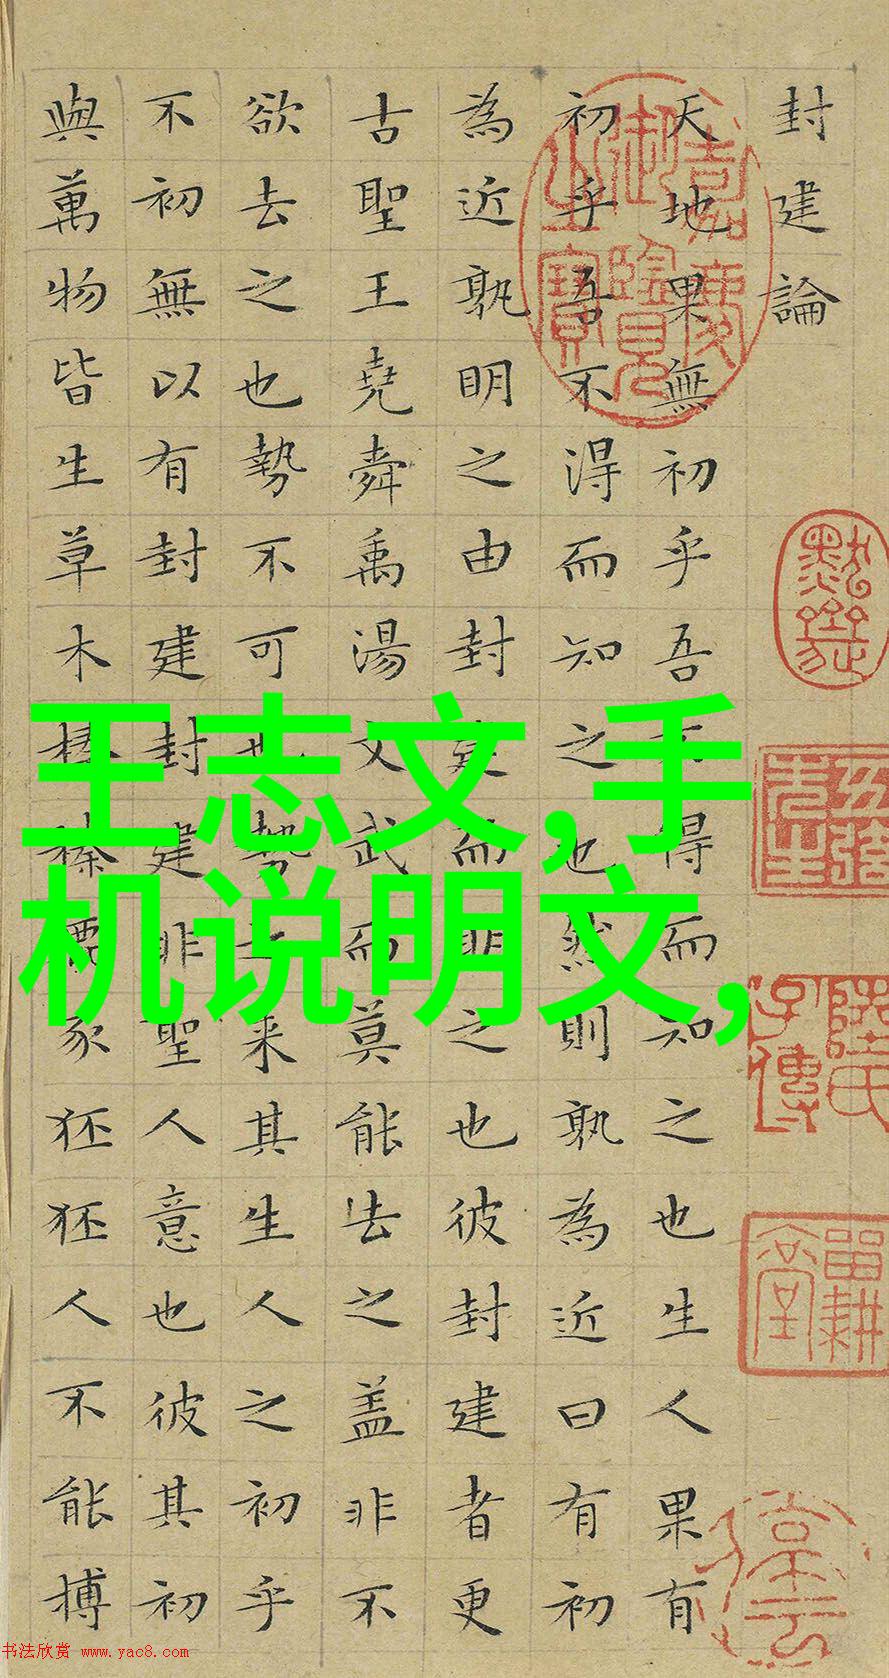 封建論
天地果無初乎吾不得而知之也生人果有
初乎吾不得而知之也然則孰為近曰有初
為近孰明之由封建而之也彼封建者更
古聖王堯舜禹湯文武而莫能去之盖非不
欲去之也勢不可也勢之来其生人之初乎
不初無以有封建封建非聖人意也彼其初
與萬物皆生草木榛榛鹿豕狉狉人不能搏
王志文,手
机说明文,
嘉慶御覽之寶
陸氏子傳
书法欣赏 www.yac8.com